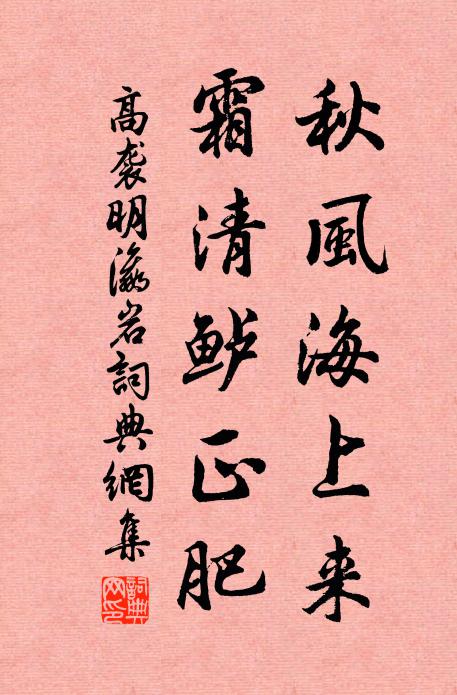 秋風海上来
霜清鲈正肥
高袭明瀛岩詞典網集
詞典
网印